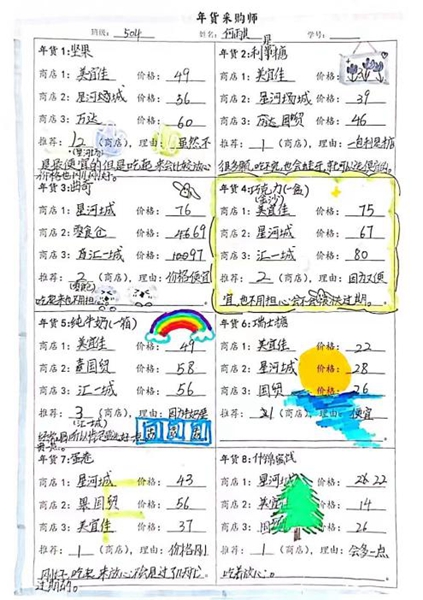 年货采购师
班级：504 姓名： 学号：
年货1：坚果
商店1：美宜佳 价格：49
商店2：星河城 价格：56
商店3：万达 价格：60
推荐：2（商店），理由：虽然不
(星河城)
是最便宜的但是吃起来会比较放心
价格也刚刚好。
年货2：利是糖
商店1：美宜佳 价格：
商店2：星河城 价格：39
商店3：万达国贸 价格：46
推荐：1（商店），理由：一包利是糖
很多颗，吃不完也会
年货3：曲奇
商店1：星河城 价格：76
商店2：零食仓 价格：69
商店3：百汇一城 价格：97
推荐：2（商店），理由：价格便宜
吃起来也不用担心
年货4：巧克力(一盒)
(金沙)
商店1：美宜佳 价格：75
商店2：星河城 价格：67
商店3：汇一城 价格：80
推荐：2（商店），理由：因为又便
宜，也不用担心会不会很快过期。
年货5：纯牛奶(一箱)
商店1：美宜佳 价格：49
商店2：国贸 价格：58
商店3：汇一城 价格：56
推荐：3（商店），理由：因为
(汇一城)
年货6：瑞士糖
商店1：美宜佳 价格：22
商店2：星河城 价格：28
商店3：国贸 价格：26
推荐：1（商店），理由：便宜
年货7：蛋卷
商店1：星河城 价格：43
商店2：国贸 价格：56
商店3：美宜佳 价格：37
推荐：1（商店），理由：价格刚
刚好，吃起来放心不会是过了期
过期的。
年货8：什锦
商店1：星河城 价格：22
商店2：美宜佳 价格：14
商店3：国贸 价格：26
推荐：1（商店），理由：会多一点
吃着放心。